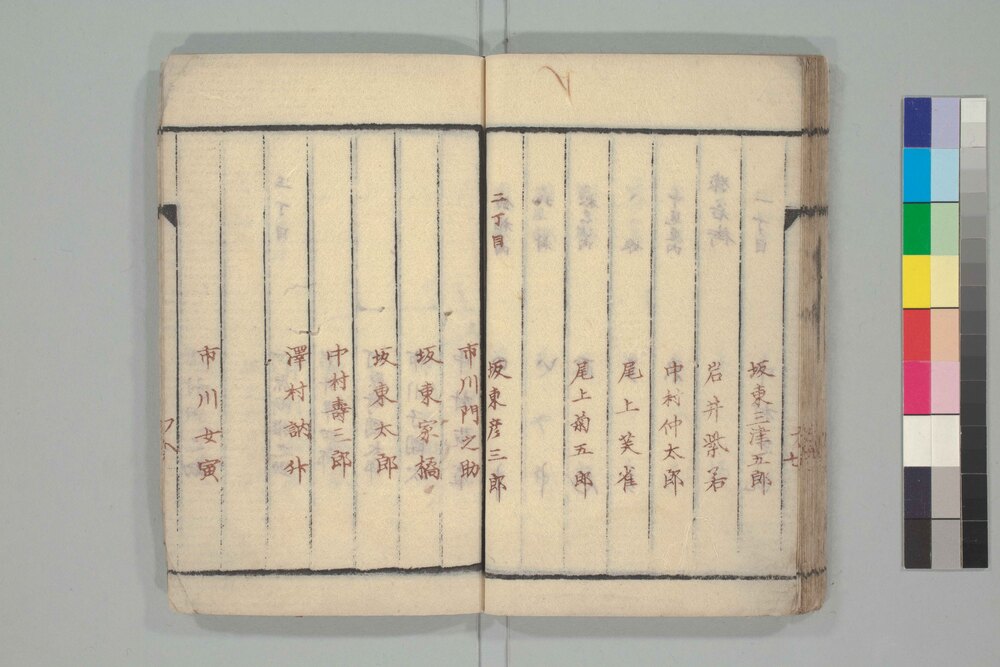 坂東三津五郎
岩井紫若
中村仲太郎
尾上芙雀
尾上菊五郎
二丁目
坂東彦三郎
市川門之助
坂東家橘
坂東太郎
中村壽三郎
澤村訥升
市川女寅